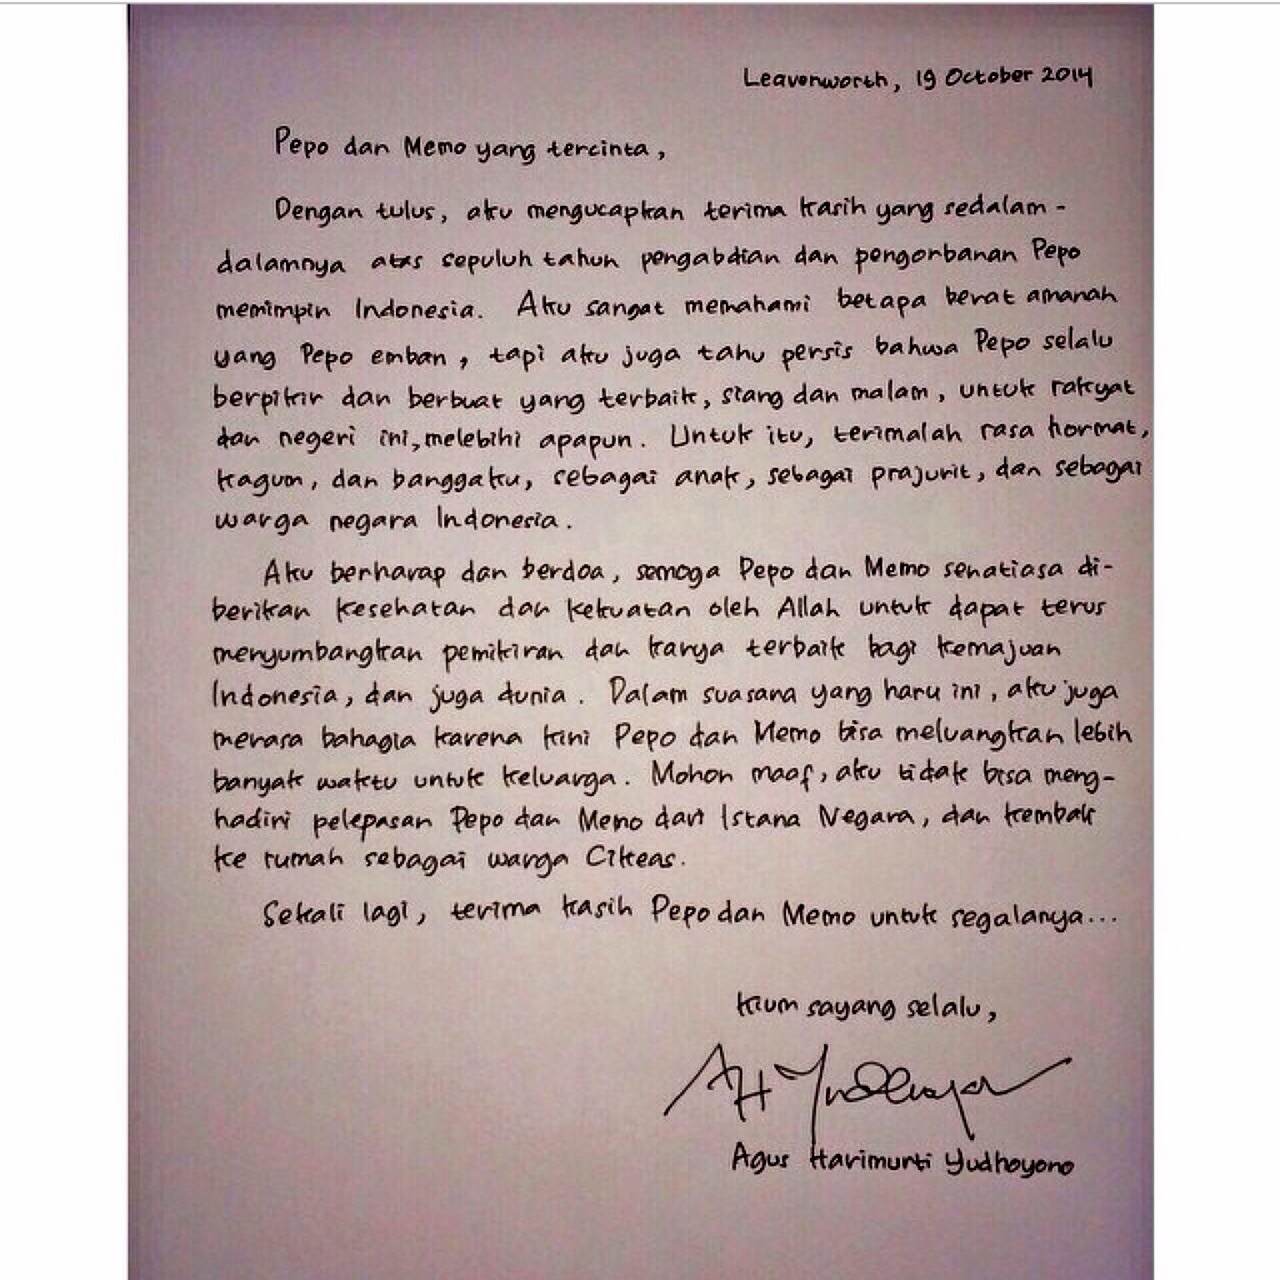 Leavenworth, 19 October 2014
Pepo dan Memo yang tercinta,
Dengan tulus, aku mengucapkan terima kasih yang sedalam-
dalamnya atas sepuluh tahun pengabdian dan pengorbanan Pepo
memimpin Indonesia. Aku sangat memahami betapa berat amanah
yang Pepo emban, tapi aku juga tahu persis bahwa Pepo selalu
berpikir dan berbuat yang terbaik, siang dan malam, untuk rakyat
dan negeri ini, melebihi apapun. Untuk itu, terimalah rasa hormat,
kagum, dan banggaku, sebagai anak, sebagai prajurit, dan sebagai
warga negara Indonesia.
Aku berharap dan berdoa, semoga Pepo dan Memo senatiasa di-
berikan kesehatan dan kekuatan oleh Allah untuk dapat terus
menyumbangkan pemikiran dan karya terbaik bagi kemajuan
Indonesia, dan juga dunia. Dalam suasana yang haru ini, aku juga
merasa bahagia karena kini Pepo dan Memo bisa meluangkan lebih
banyak waktu untuk keluarga. Mohon maaf, aku tidak bisa meng-
hadiri pelepasan Pepo dan Memo dari Istana Negara, dan kembali
ke rumah sebagai warga Cikeas.
Sekali lagi, terima kasih Pepo dan Memo untuk segalanya...
Kium sayang selalu,
AHYudhoyono
Agus Harimurti Yudhoyono